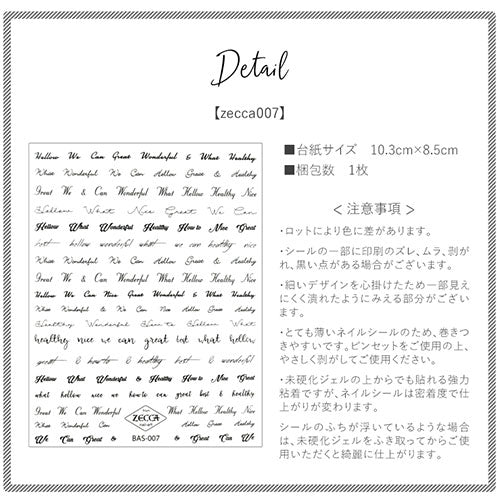 Detail
【zecca007】
■台紙サイズ 10.3cm×8.5cm
■梱包数 1枚
＜注意事項＞
・ロットにより色に差があります。
・シールの一部に印刷のズレ、ムラ、剥が
れ、黒い点がある場合がございます。
・細いデザインを心掛けたため一部見え
にくく潰れたようにみえる部分がござい
ます。
・とても薄いネイルシールのため、巻きつ
きやすいです。ピンセットをご使用の上、
やさしく剥がしてご使用ください。
・未硬化ジェルの上からでも貼れる強力
粘着ですが、ネイルシールは密着度で仕
上がりが変わります。
シールのふちが浮いているような場合
は、未硬化ジェルをふき取ってからご使
用いただくと綺麗に仕上がります。
Hollow We Can Great Wonderful & What Healthy
What Wonderful We Can Hollow Great & Healthy
Great We & Can Wonderful What Hollow Healthy Nice
Hollow What Nice Great We Can
Hollow What Wonderful Healthy How to Nice Great
but hollow wonderful what we can healthy nice
Great We & Can Wonderful What Hollow Healthy
Hollow We Can Nice Great Wonderful & What Healthy
Healthy Wonderful How to Can Hollow
healthy nice we can great but what hollow
great & how to & healthy but & wonderful
Hollow What Wonderful & Healthy How to Nice Great
what hollow nice we how to can great but & healthy
What Wonderful We Can
What Hollow Healthy
Great We & Can
Hollow Great & Healthy
We Can Great
& Great Can We
ZECCA
BAS-007